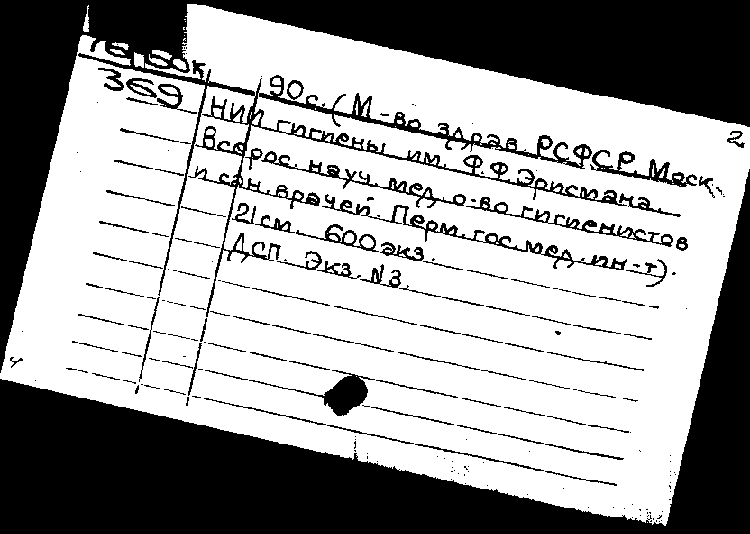 2
369
90с. (М-во здрав. РСФСР. Моск.
НИИ гигиены им. Ф.Ф.Эрисмана.
Всерос. науч. мед. о-во гигиенистов
и сан. врачей. Перм. гос. мед. ин-т).
21см. 600экз.
ДСП. Экз. №3.